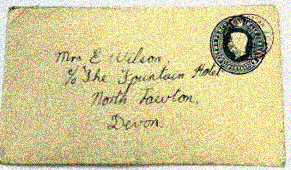 Mrs E Wilson,
c/o The Fountain Hotel
North Tawton,
Devon.